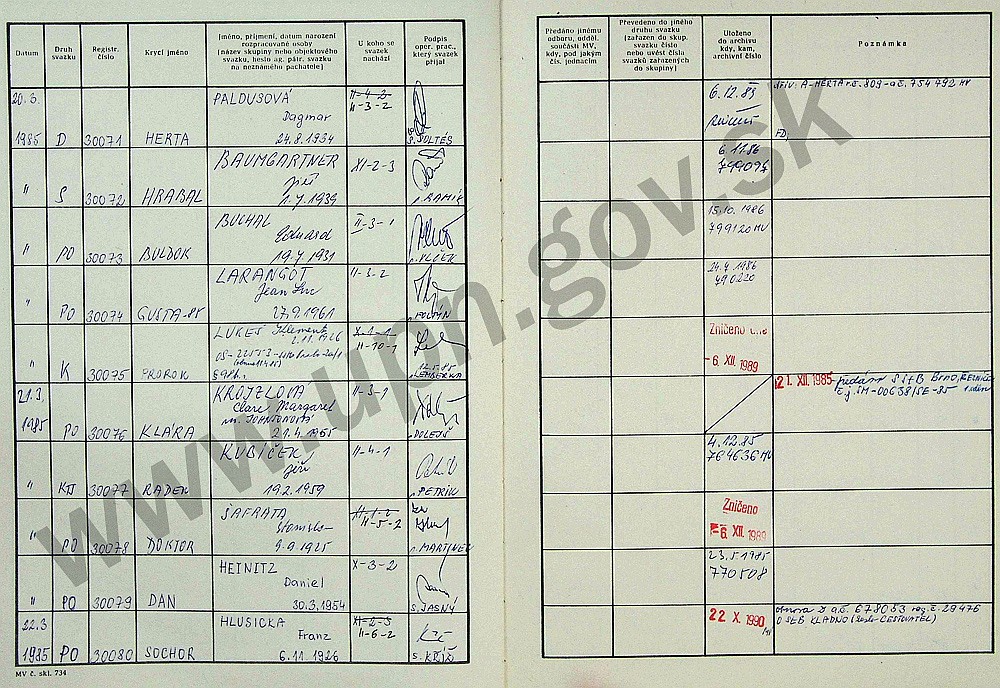 Datum
Druh svazku
Registr. číslo
Krycí jméno
Jméno, příjmení, datum narození
rozpracované osoby
(název skupiny nebo objektového
svazku, heslo ag. pátr. svazku
na neznámého pachatele)
U koho se
svazek
nachází
Podpis
oper. prac.,
který svazek
přijal
Předáno jinému
odboru, odděl.
součásti MV,
kdy, pod jakým
čís. jednacím
Převedeno do jiného
druhu svazku
(zařazen do skup.
svazku číslo
nebo uvést čísla
svazků zařazených
do skupiny)
Uloženo
do archivu
kdy, kam,
archivní číslo
Poznámka
20.3.
1985 D 30071 HERTA
PALDUSOVÁ
Dagmar
24.8.1934
II-4-2
II-3-2
S. ŠOLTÉS
6.12.83
dřív: A-HERTA r.č. 809-a.č. 754 792 MV
" S 30072 HRABAL
BAUMGARTNER
Jiří
1.7.1939
XI-2-3
6.11.86
799096
" PO 30073 BULDOK
BUCHAL
Eduard
19.7.1931
II-3-1
s. VLČEK
15.10.1986
799120 MV
" PO 30074 GUSTA-85
LARANGOT
Jean Luc
27.9.1961
II-3-2
24.4.1986
790220
" K 30075 PROROK
LUKEŠ Klement
2.11.1926
X-1-1
II-10-1
12.5.85
LEMBERKA
Zničeno dne
-6. XII. 1989
21.3.
1985 PO 30076 KLÁRA
KROJZLOVA
Clare Margaret
21.4.1955
II-3-1
s. DOLEJŠ
21. XII. 1985 předán S StB Brno,
Č.j. SM-00638/SE-85
" KTS 30077 RADEK
KUBÍČEK
Jiří
19.2.1959
II-4-1
s. PETRÍK
4.12.85
764636 MV
" PO 30078 DOKTOR
ŠAFRATA
Stanislav
9.9.1925
XI-1-2
II-5-2
s. MARTINEC
Zničeno
-6. XII. 1989
" PO 30079 DAN
HEINITZ
Daniel
30.3.1954
X-3-2
S. JASNÝ
23.5.1985
770508
22.3
1985 PO 30080 SOCHOR
HLUSICKA
Franz
6.11.1926
XI-2-5
II-6-2
S. KŘÍŽ
22 X. 1990
obnova z a.č. 678053 reg.č. 29476
O StB KLADNO (heslo CESTOVATEL)
MV č. skl. 734
www.upn.gov.sk